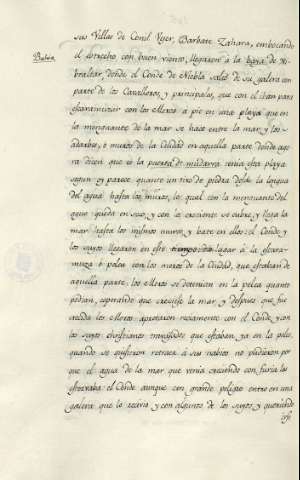 sus Villas de Conil, Vejer, Barbate, Zahara, embocando
Bahia
el estrecho con buen viento, llegaron á la bahia de Gi-
braltar, donde el Conde de Niebla salió de su galera con
parte de los Cavalleros, y principales, que con él iban para
escaramuzar con los Moros a pie en una playa que en
la menguante de la mar se hace entre la mar y los
adarbes, ó muros de la Ciudad en aquella parte donde ago
ra dicen que es la puerta de
esta playa
segun oy parece quanto un tiro de piedra desde la lengua
del agua hasta los muros, lo qual con la menguante del
agua queda en seco, y con la creciente se cubre, y llega la
mar hasta los mismos muros, y bate en ellos: el Conde, y
los suyos llegaron en este tiempo
á la escara-
muza ó pelea con los moros de la Ciudad, que estaban de
aquella parte: los Moros se detenian en la pelea quanto
podian, esperando que creciese la mar, y despues que fue
crecida los Moros apretaron reciamente con el Conde, y con
los suyos christianos
que estaban ya en la pelea,
quando se quisieron retraer á sus navios no pudieron por
que el agua de la mar que venia creciendo con furia les
estorvaba el Conde aunque con grande peligro entró en una
galera que lo
y con algunos de los suyos, y queriendo